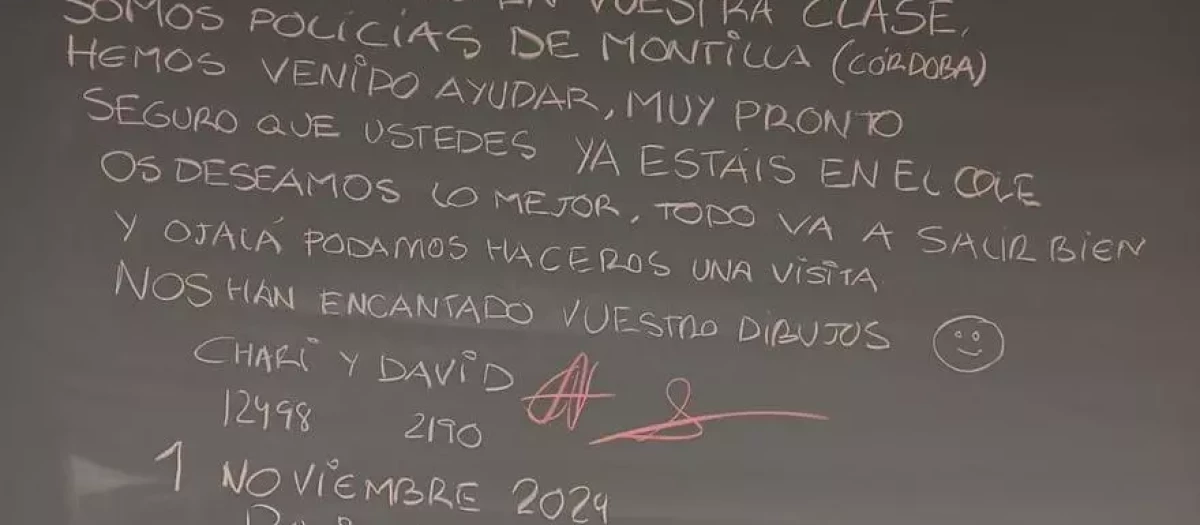 EN VUESTRA CLASE.
SOMOS POLICÍAS DE MONTILLA (CÓRDOBA)
HEMOS VENIDO AYUDAR, MUY PRONTO
SEGURO QUE USTEDES YA ESTÁIS EN EL COLE
OS DESEAMOS LO MEJOR, TODO VA A SALIR BIEN
Y OJALÁ PODAMOS HACEROS UNA VISITA
NOS HAN ENCANTADO VUESTRO DIBUJOS
CHARI Y DAVID
12498 2190
1 NOVIEMBRE 2024